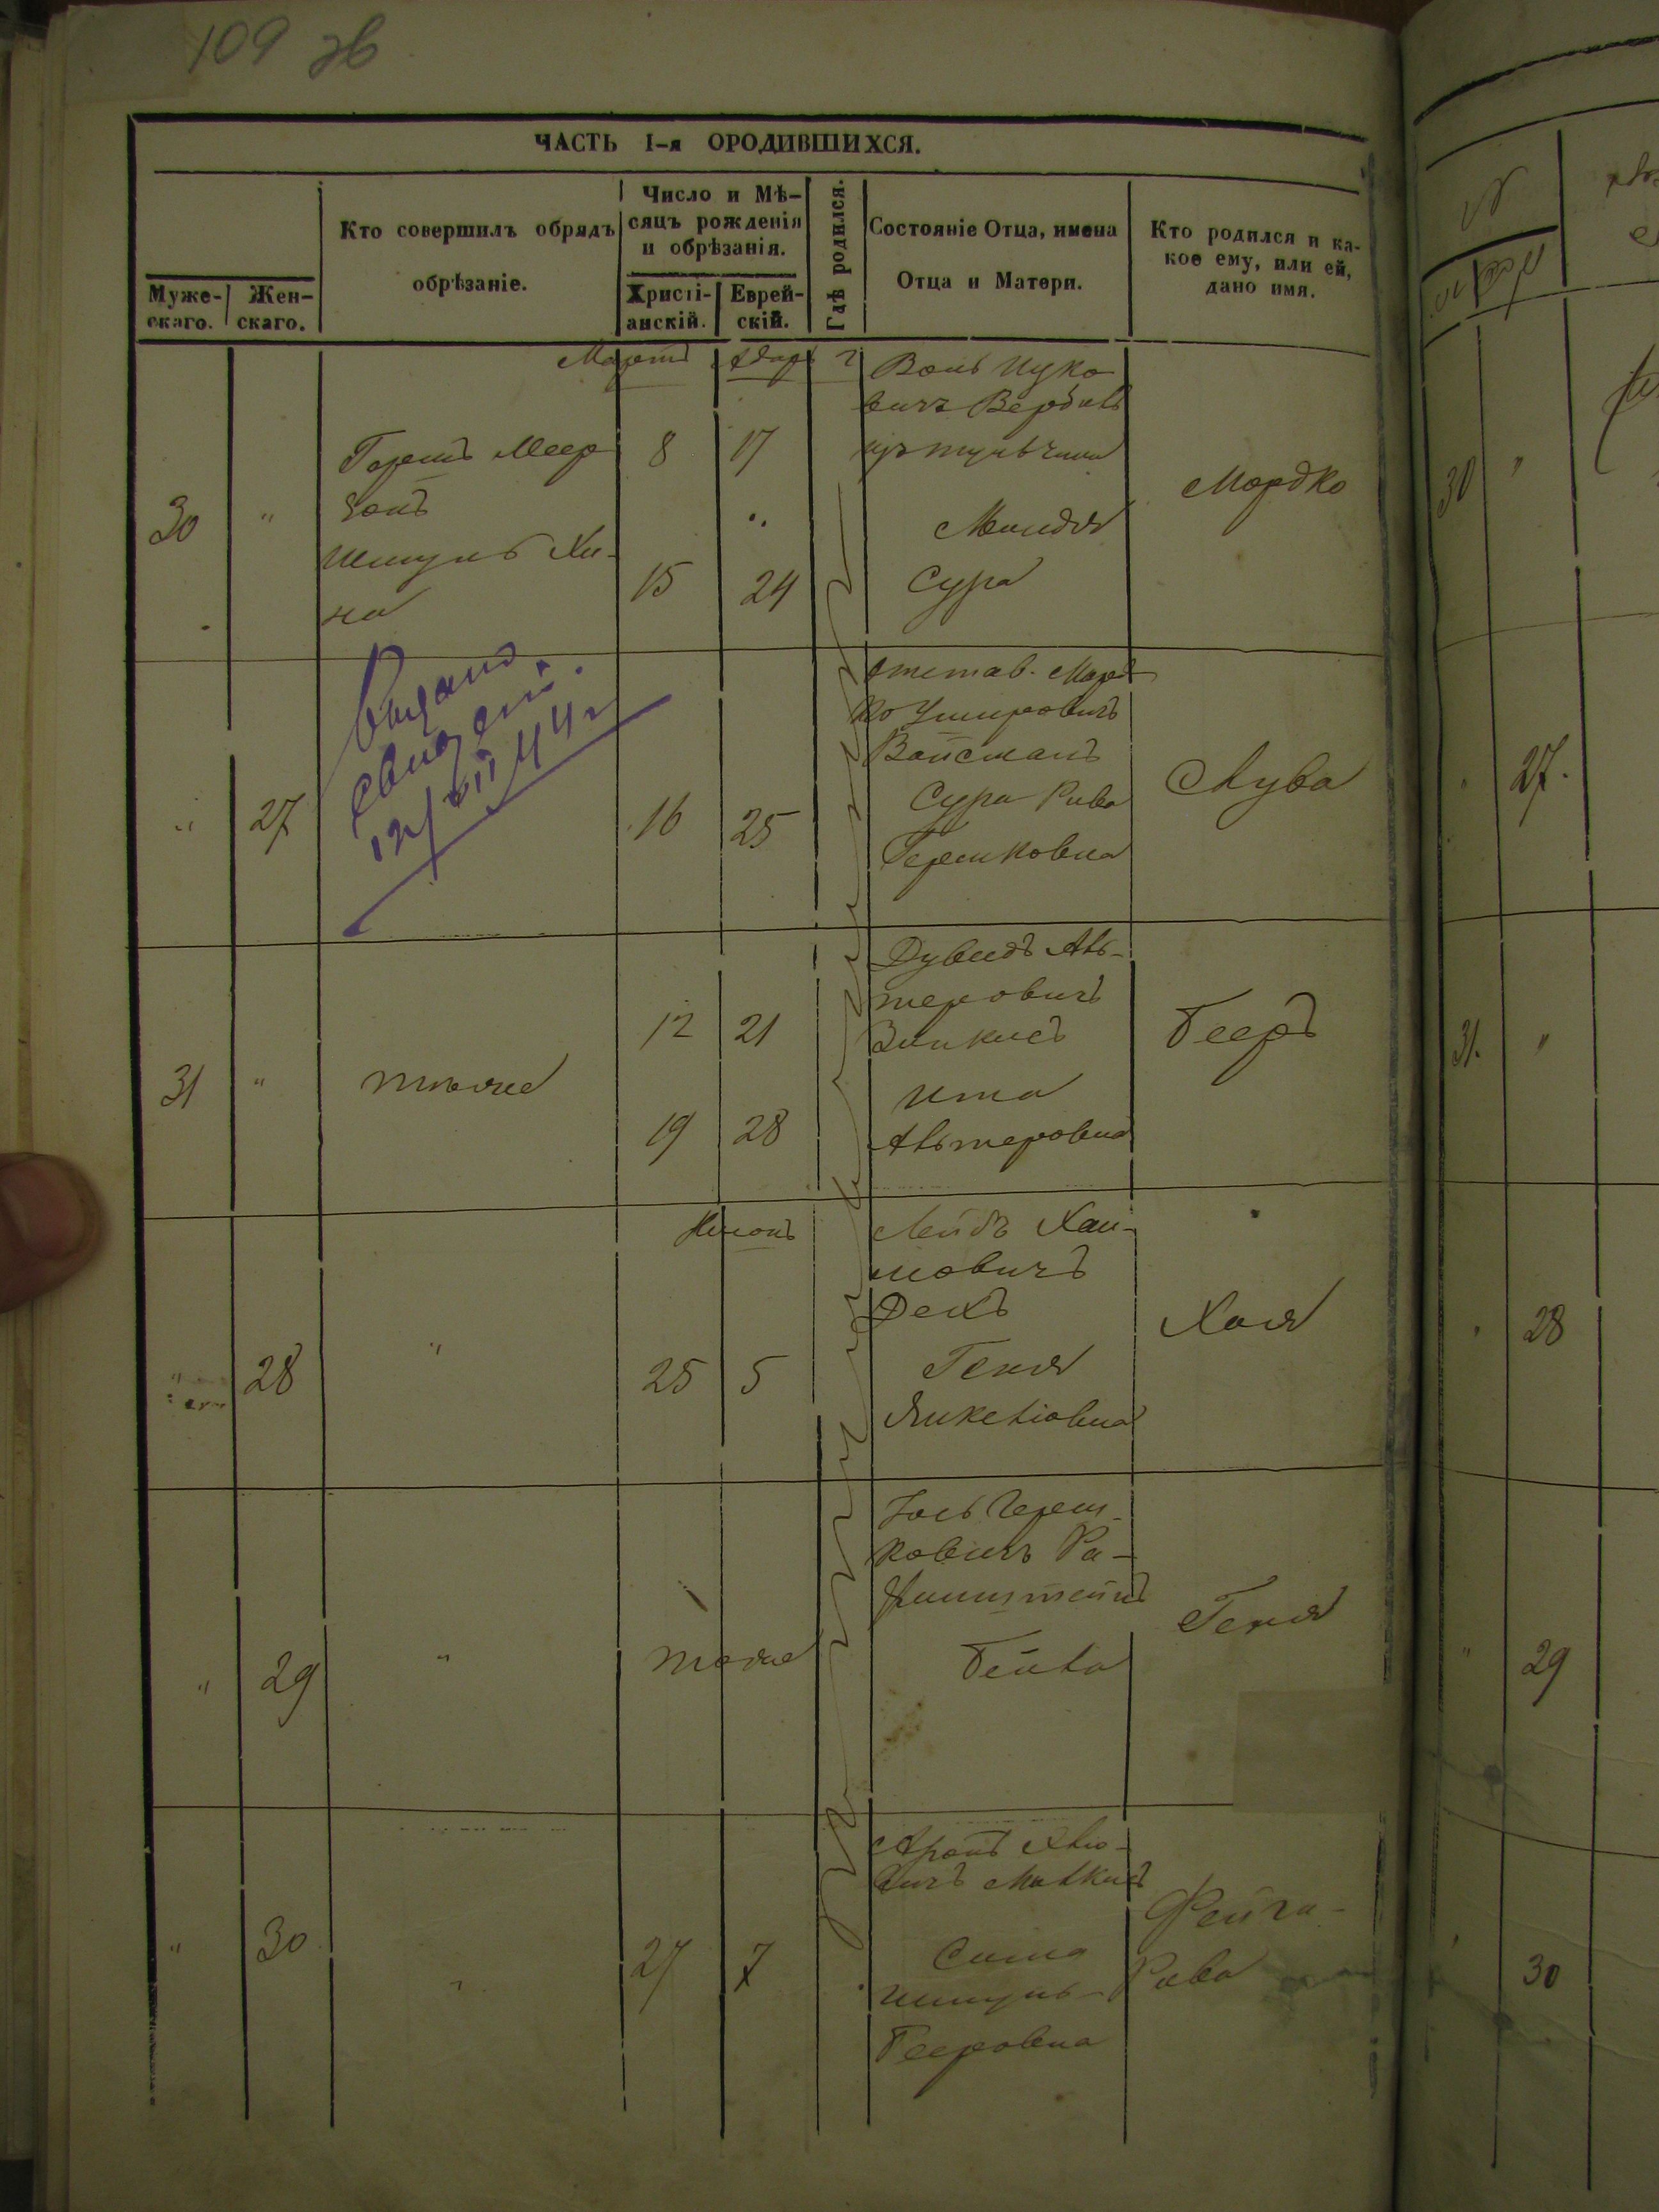 109 зв
ЧАСТЬ I-я О РОДИВШИХСЯ.
Муже-
скаго.
Жен-
скаго.
Кто совершилъ обрядъ
обрѣзаніе.
Число и Мѣ-
сяцъ рожденія
и обрѣзанія.
Христі-
анскій.
Еврей-
скій.
Гдѣ родился.
Состояніе Отца, имена
Отца и Матери.
Кто родился и ка-
кое ему, или ей,
дано имя.
Мартъ Адаръ 2
30 "
Гершъ Меер
зонъ
Шмуль Хи-
на
8 17
15 24
Волъ Ицко
вичъ
изъ Тульчина
Миндля
Сура
Мордко
" 27
Выдано
свидет.
12/VII 44 г
16 25
отстав. Морд
ко Ушеровичъ
Вайсманъ
Сура Рива
Гершковна
Люба
31 "
тоже
12 21
19 28
Дувидъ Аль-
теровичъ
Зинкисъ
Ита
Альтеровна
Бееръ
Нисонъ
" 28 "
25 5
Лейбъ Хаи-
мовичъ
Дехъ
Геня
Янкелiовна
Хая
" 29 "
тоже
Іось Герш-
ковичъ Ра-
Бейла
Геня
" 30 "
27 7
Аронъ
вичъ Малкисъ
Сима
Шмуль-
Бееровна
Фейга-
Рива
30 "
" 27.
31. "
28
" 29
30